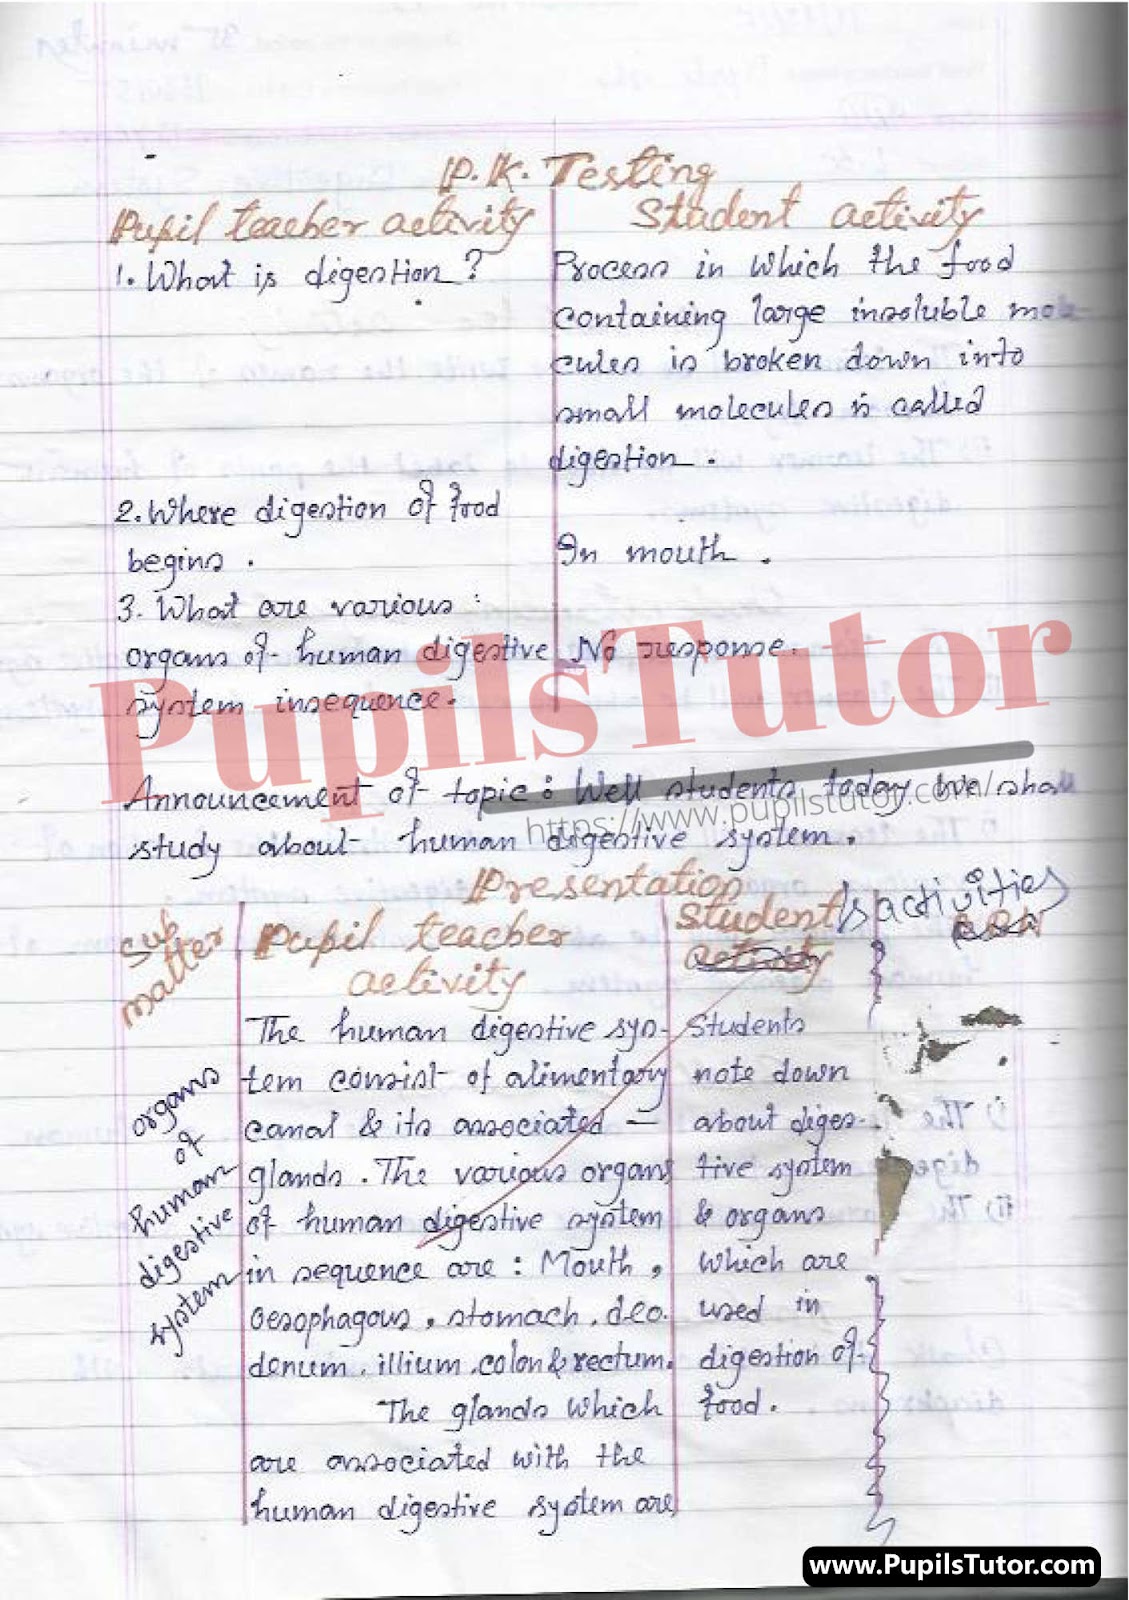 P.K. Testing
Pupil teacher activity
Student activity
1. What is digestion?
Process in which the food
containing large insoluble mole-
cules is broken down into
small molecules is called
digestion.
2. Where digestion of food
begins.
In mouth.
3. What are various
organs of human digestive
system insequence.
No response.
Announcement of topic: Well students today we shall
study about human digestive system.
Presentation
Sub
matter
Pupil teacher
activity
Student's activities
activity
organs
of
human
digestive
system
The human digestive sys-
tem consist of alimentary
canal & its associated —
glands. The various organs
of human digestive system
in sequence are: Mouth,
oesophagous, stomach, deo.
denum, illium, colon & rectum.
The glands which
are associated with the
human digestive system are
Students
note down
about diges-
tive system
& organs
which are
used in
digestion of
food.
PupilsTutor
https://www.pupilstutor.com/
www.PupilsTutor.com